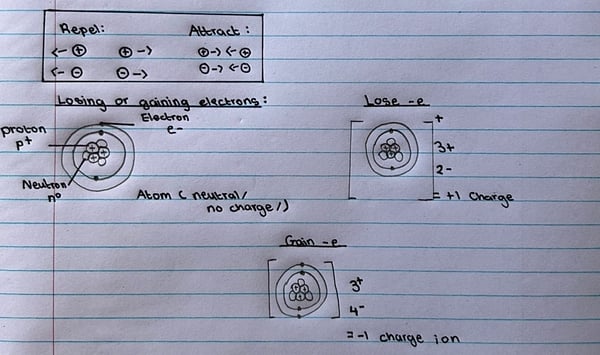 Repel: Attract:
<-⊕ ⊕-> ⊕-> <-⊕
<-⊖ ⊖-> ⊖-> <-⊖
Losing or gaining electrons:
Electron
e-
proton
p+
Neutron
n°
Atom (neutral/
no charge/)
Lose -e
+
3+
2-
= +1 charge
Gain -e
3+
4-
= -1 charge ion